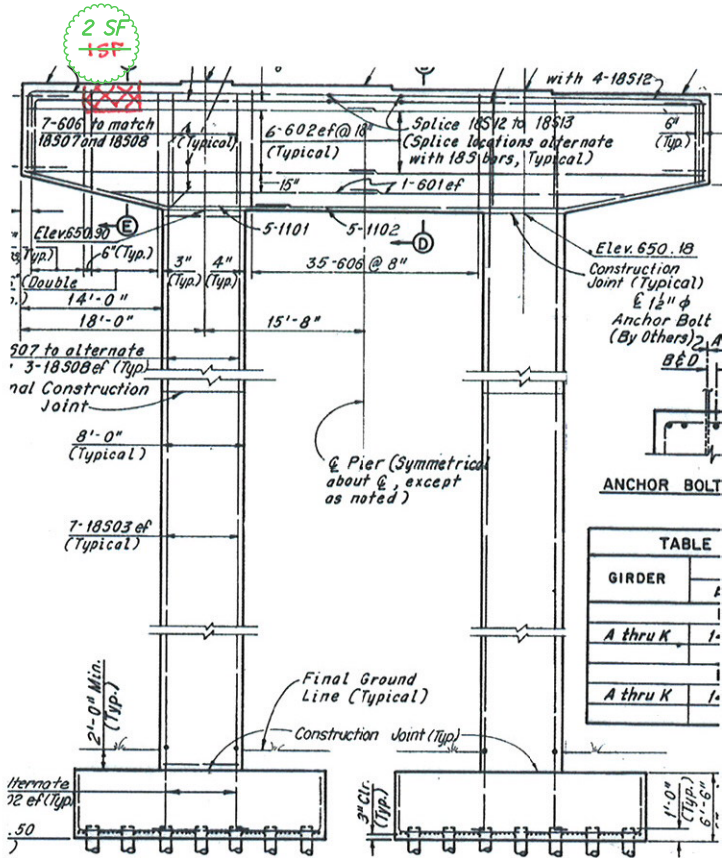 2 SF
1SF
with 4-18S12
7-606 to match
18S07 and 18S08
(Typical)
6-602ef@ 18"
(Typical)
15"
Splice 18S12 to 18S13
(Splice locations alternate
with 18S bars, Typical)
6"
(Typ.)
1-601ef
E
Elev. 650.90
5-1101
5-1102
D
6"(Typ.)
3"
(Typ.)
4"
(Typ.)
35-606 @ 8"
Elev. 650.18
Construction
Joint (Typical)
(Double
14'-0"
18'-0"
15'-8"
℄ 1½" ϕ
Anchor Bolt
(By Others)
B&D
S07 to alternate
3-18S08ef (Typ)
nal Construction
Joint
8'-0"
(Typical)
℄ Pier (Symmetrical
about ℄, except
as noted)
ANCHOR BOLT
7-18S03 ef
(Typical)
TABLE
GIRDER
A thru K
A thru K
2'-0" Min.
(Typ.)
Final Ground
Line (Typical)
Construction Joint (Typ)
lternate
02 ef (Typ)
.50
3" Clr.
(Typ.)
1'-0"
(Typ.)
6'-6"